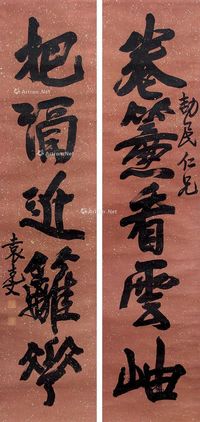 卷簾看雲岫
民仁兄
把酒近籬花
袁克文
Artron.Net
Artron.Net